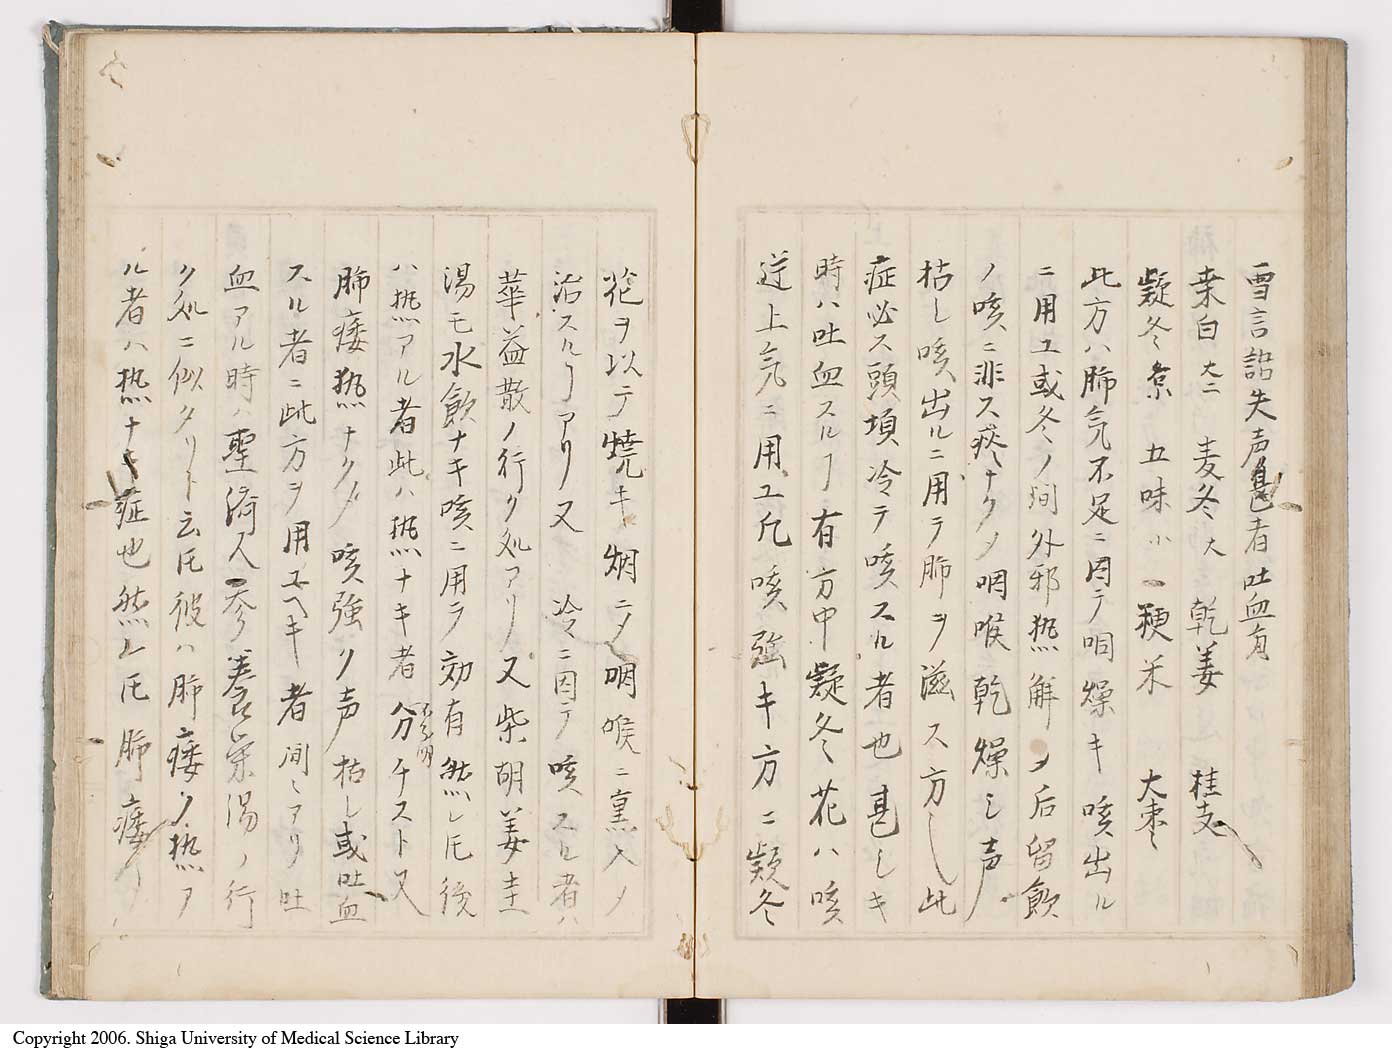 雪言語失声甚者吐血有
桒白大二 麦冬大 乾姜 桂支
凝冬 五味小一 粳米 大棗
此方ハ肺気不足ニ因テ咽燥キ咳出ル
ニ用ユ或冬ノ間外邪熱解〆后留飲
ノ咳ニ非ス痰ナク〆咽喉乾燥シ声
枯レ咳出ルニ用テ肺ヲ滋ス方也此
症必ス頭項冷テ咳スル者也甚シキ
時ハ吐血スルヿ有方中凝冬花ハ咳
逆上気ニ用ユ凡咳強キ方ニ凝冬
花ヲ以テ焼キ烟ニ〆咽喉ニ熏入〆
治スルヿアリ又冷ニ因テ咳スル者ハ
華益散ノ行ク処アリ又柴胡姜圭
湯モ水飲ナキ咳ニ用テ効有然レ𪜈後
ハ熱アル者此ハ熱ナキ者分チスト又
肺痿熱ナク〆咳強ク声枯レ或吐血
スル者ニ此方ヲ用ユヘキ者間ミアリ吐
血アル時ハ聖済人参養栄湯ノ行
ク処ニ似タリト云𪜈彼ハ肺痿ノ熱ア
ル者ハ熱ナキ症也然レ𪜈肺痿
Copyright 2006. Shiga University of Medical Science Library